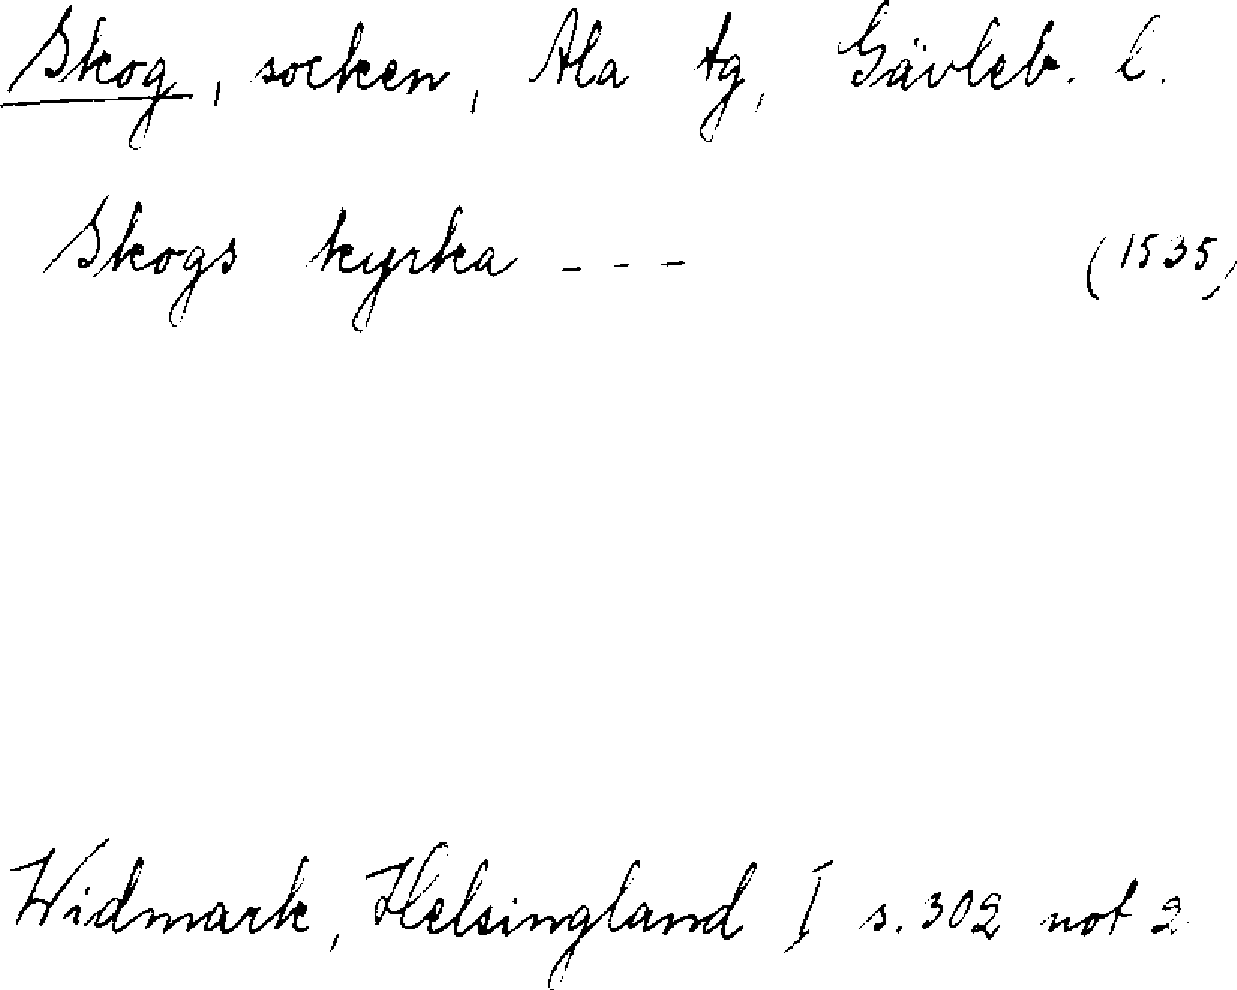 Skog, socken, Ala tg, Gävleb. l.
Skogs kyrka - - - (1535)
Widmark, Helsingland I s. 302 not 2